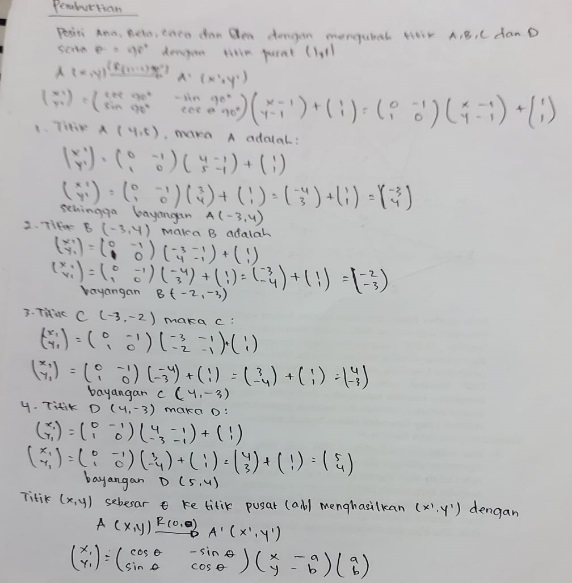 Pembuktian
Posisi Ana, Beta, Caca dan Dea dengan mengubah titik A,B,C dan D
serta θ = 90° dengan titik pusat (1,1)
A (x,y) A' (x',y')
(x' y') = (cos 90° -sin 90° sin 90° cos θ 90°) (x -1 y -1) + (1 1) = (0 -1 1 0) (x -1 y -1) + (1 1)
1. Titik A (4,5), maka A adalah:
(x' y') = (0 -1 1 0) (4 -1 5 -1) + (1 1)
(x' y') = (0 -1 1 0) (3 4) + (1 1) = (-4 3) + (1 1) = (-3 4)
sehingga bayangan A (-3,4)
2. Titik B (-3,4) maka B adalah
(x' y') = (0 -1 1 0) (-3 -1 4 -1) + (1 1)
(x' y') = (0 -1 1 0) (-4 3) + (1 1) = (-3 -4) + (1 1) = (-2 -3)
bayangan B (-2,-3)
3. Titik C (-3,-2) maka C:
(x' y') = (0 -1 1 0) (-3 -1 -2 -1) + (1 1)
(x' y') = (0 -1 1 0) (-4 -3) + (1 1) = (3 -4) + (1 1) = (4 -3)
bayangan C (4,-3)
4. Titik D (4,-3) maka D:
(x' y') = (0 -1 1 0) (4 -1 -3 -1) + (1 1)
(x' y') = (0 -1 1 0) (3 -4) + (1 1) = (4 3) + (1 1) = (5 4)
bayangan D (5,4)
Titik (x,y) sebesar θ ke titik pusat (a,b) menghasilkan (x',y') dengan
A (x,y) R(0,θ) A' (x',y')
(x' y') = (cos θ -sin θ sin θ cos θ) (x -a y -b) (a b)